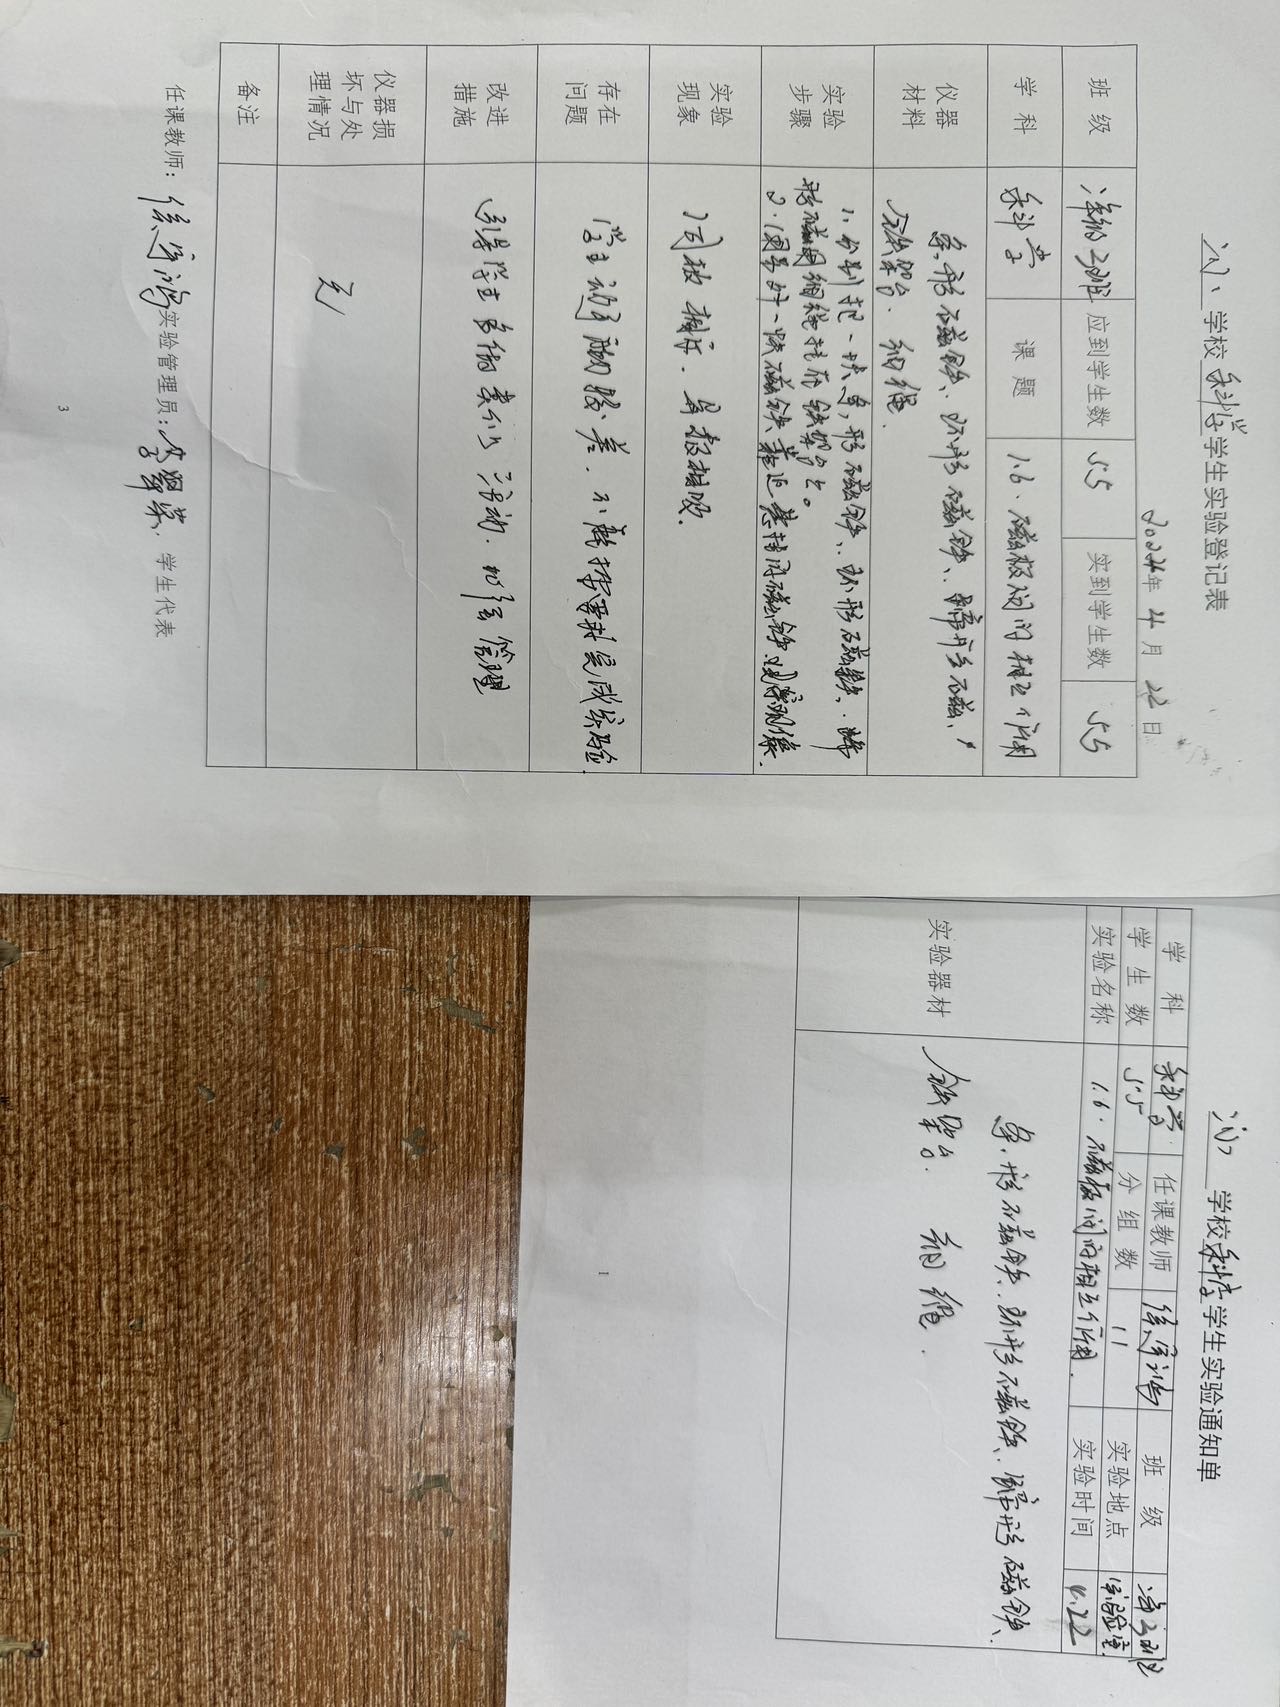 学校 科学 学生实验登记表
2024年 4月 22日
班级 三班 应到学生数 55 实到学生数 55
学科 科学 课题 1.6.磁极间的相互作用
仪器材料 条形磁铁、环形磁铁、蹄形磁铁、
铁架台、细绳.
实验步骤 1.分别把一块条形磁铁、环形磁铁、蹄
形磁铁用细绳挂在铁架台上。
2.使另外一块磁铁靠近悬挂的磁铁.观察现象.
实验现象 同极相斥.异极相吸.
存在问题 学生动手能力较差.不能按要求完成实验
改进措施 引导学生多做类似活动.加强管理
仪器损坏与处理情况 无
备注
任课教师: 实验管理员: 学生代表
3
学校 科学 学生实验通知单
学科 科学 任课教师 班级 三班
学生数 55 分组数 11 实验地点 实验室
实验名称 1.6.磁极间的相互作用. 实验时间 4.22
实验器材 条形磁铁、环形磁铁、蹄形磁铁、
铁架台. 细绳.
1